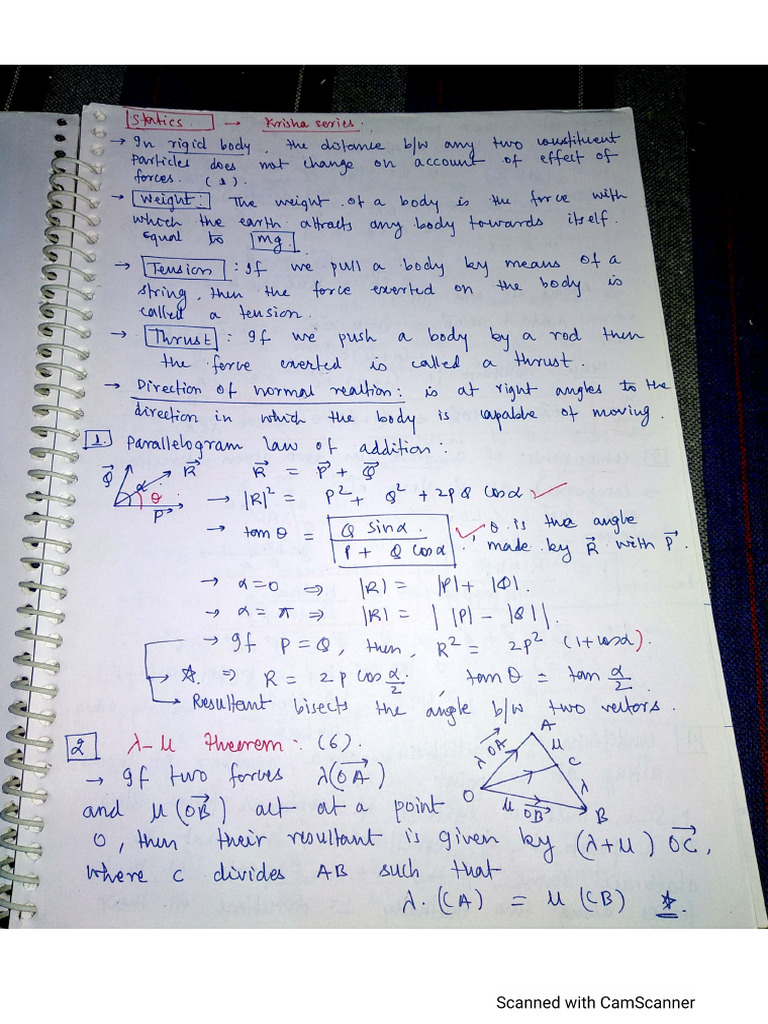 Statics. → Krisha series.
→ In rigid body, the distance b/w any two constituent
particles does not change on account of effect of
forces. (1).
→ Weight: The weight of a body is the force with
which the earth attracts any body towards itself.
equal to mg.
→ Tension: If we pull a body by means of a
string, then the force exerted on the body is
called a tension.
→ Thrust: If we push a body by a rod then
the force exerted is called a thrust.
→ Direction of normal reaction: is at right angles to the
direction in which the body is capable of moving.
1. Parallelogram law of addition:
Q⃗ R⃗ α θ P⃗ R⃗ = P⃗ + Q⃗
→ |R|² = P² + Q² + 2PQ cosα ✓
→ tanθ = Q sinα / P + Q cosα ✓, θ is the angle
made by R⃗ with P⃗.
→ α=0 ⇒ |R| = |P| + |Q|.
→ α=π ⇒ |R| = ||P| - |Q||.
→ If P = Q, then, R² = 2P² (1+cosα).
→ ☆ ⇒ R = 2P cos α/2, tanθ = tan α/2.
→ Resultant bisects the angle b/w two vectors.
2 λ-μ theorem: (6).
O A B C λ OA⃗ μ μ OB⃗ λ
→ If two forces λ(OA⃗)
and μ(OB⃗) act at a point
O, then their resultant is given by (λ+μ) OC⃗,
where C divides AB such that
λ.(CA) = μ(CB) ☆.
Scanned with CamScanner